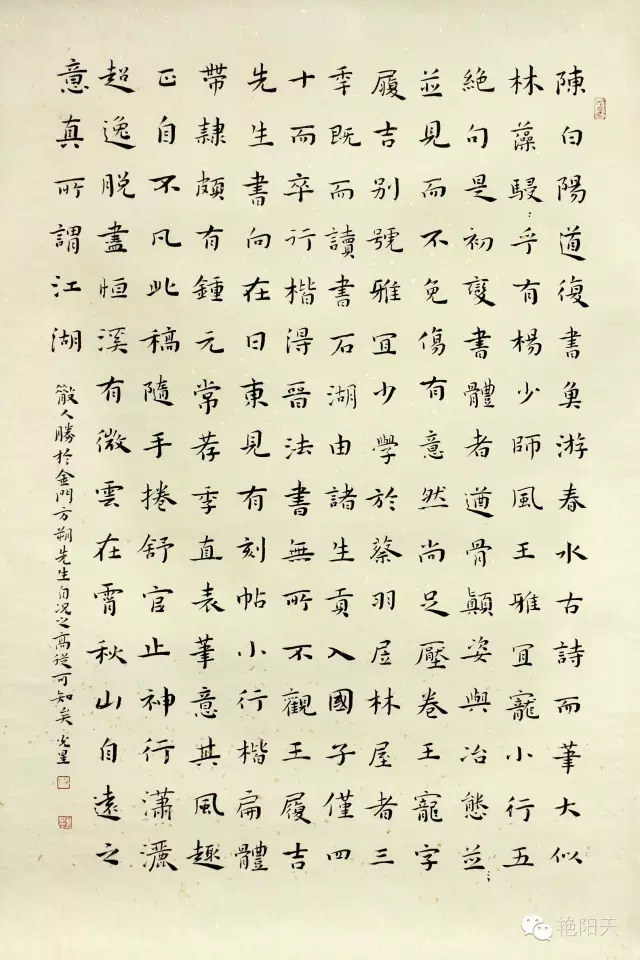 陳白陽道復書魚游春水古詩而筆大似
林藻駸乎有楊少師風王雅宜寵小行五
絕句是初變書體者遒骨顛姿與冶態並
並見而不免傷有意然尚足壓卷王寵字
履吉別號雅宜少學於蔡羽居林屋者三
季既而讀書石湖由諸生貢入國子僅四
十而卒行楷得晉法書無所不觀王履吉
先生書向在日東見有刻帖小行楷扁體
帶隸頗有鍾元常荐季直表筆意其風趣
正自不凡此稿隨手捲舒官止神行瀟灑
超逸脫盡恒溪有微雲在霄秋山自遠之
意真所謂江湖
散人勝於金門方朔先生自況之高從可知矣 光星
艳阳天